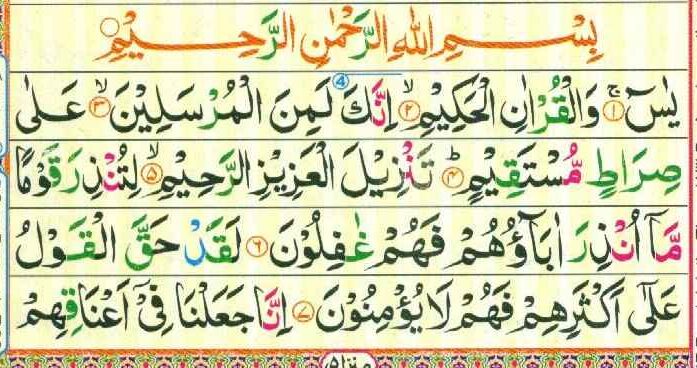 بِسْمِ اللهِ الرَّحْمٰنِ الرَّحِيْمِ
يٰسٓ ۚ﴿۱﴾ وَالْقُرْاٰنِ الْحَكِيْمِ ۙ﴿۲﴾ اِنَّكَ لَمِنَ الْمُرْسَلِيْنَ ۙ﴿۳﴾ عَلٰى
صِرَاطٍ مُّسْتَقِيْمٍ ؕ﴿۴﴾ تَنْزِيْلَ الْعَزِيْزِ الرَّحِيْمِ ۙ﴿۵﴾ لِتُنْذِرَ قَوْمًا
مَّاۤ اُنْذِرَ اٰبَآؤُهُمْ فَهُمْ غٰفِلُوْنَ ﴿۶﴾ لَقَدْ حَقَّ الْقَوْلُ
عَلٰٓى اَكْثَرِهِمْ فَهُمْ لَا يُؤْمِنُوْنَ ﴿۷﴾ اِنَّا جَعَلْنَا فِيْٓ اَعْنَاقِهِمْ